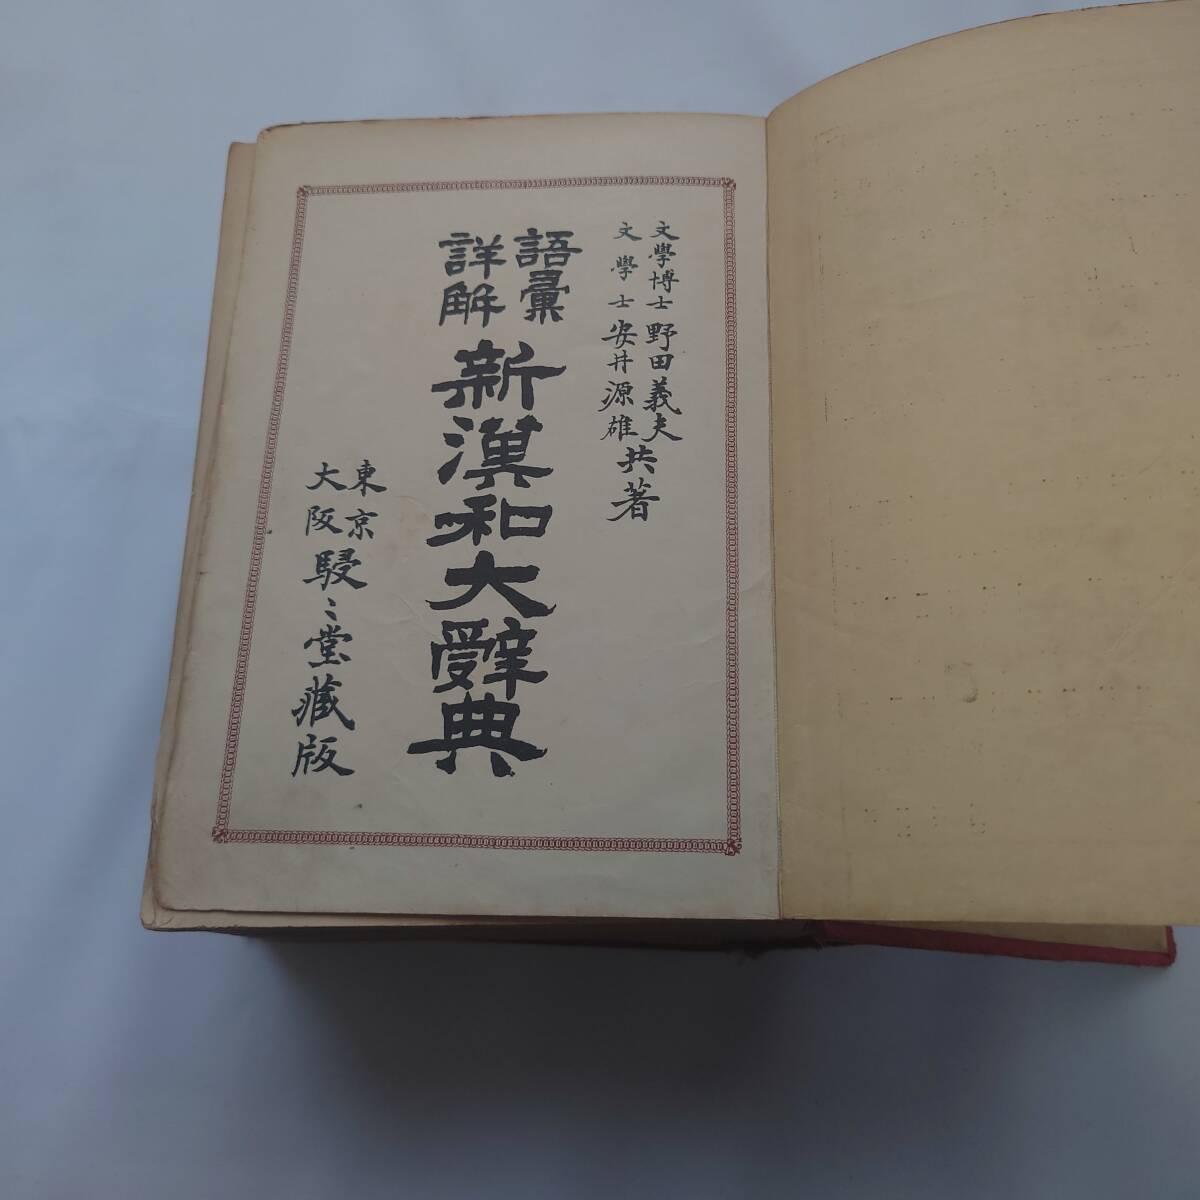 文學博士 野田義夫
文學士 安井源雄 共著
語彙
詳解
新漢和大辭典
東京
大阪
駸〻堂藏版